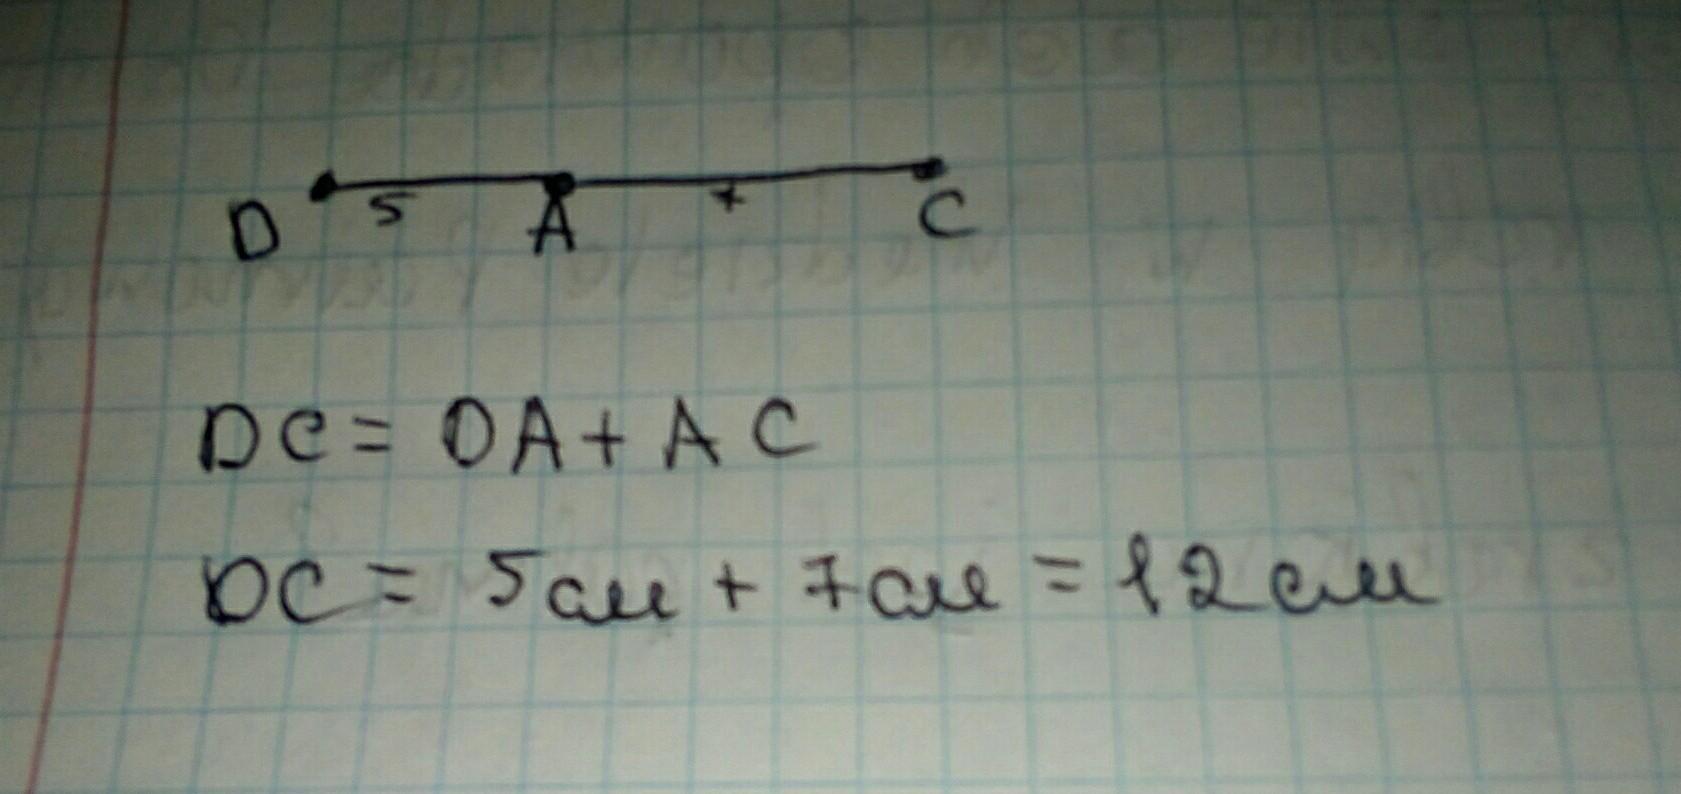 5 7
D A C
DC = DA + AC
DC = 5см + 7см = 12см